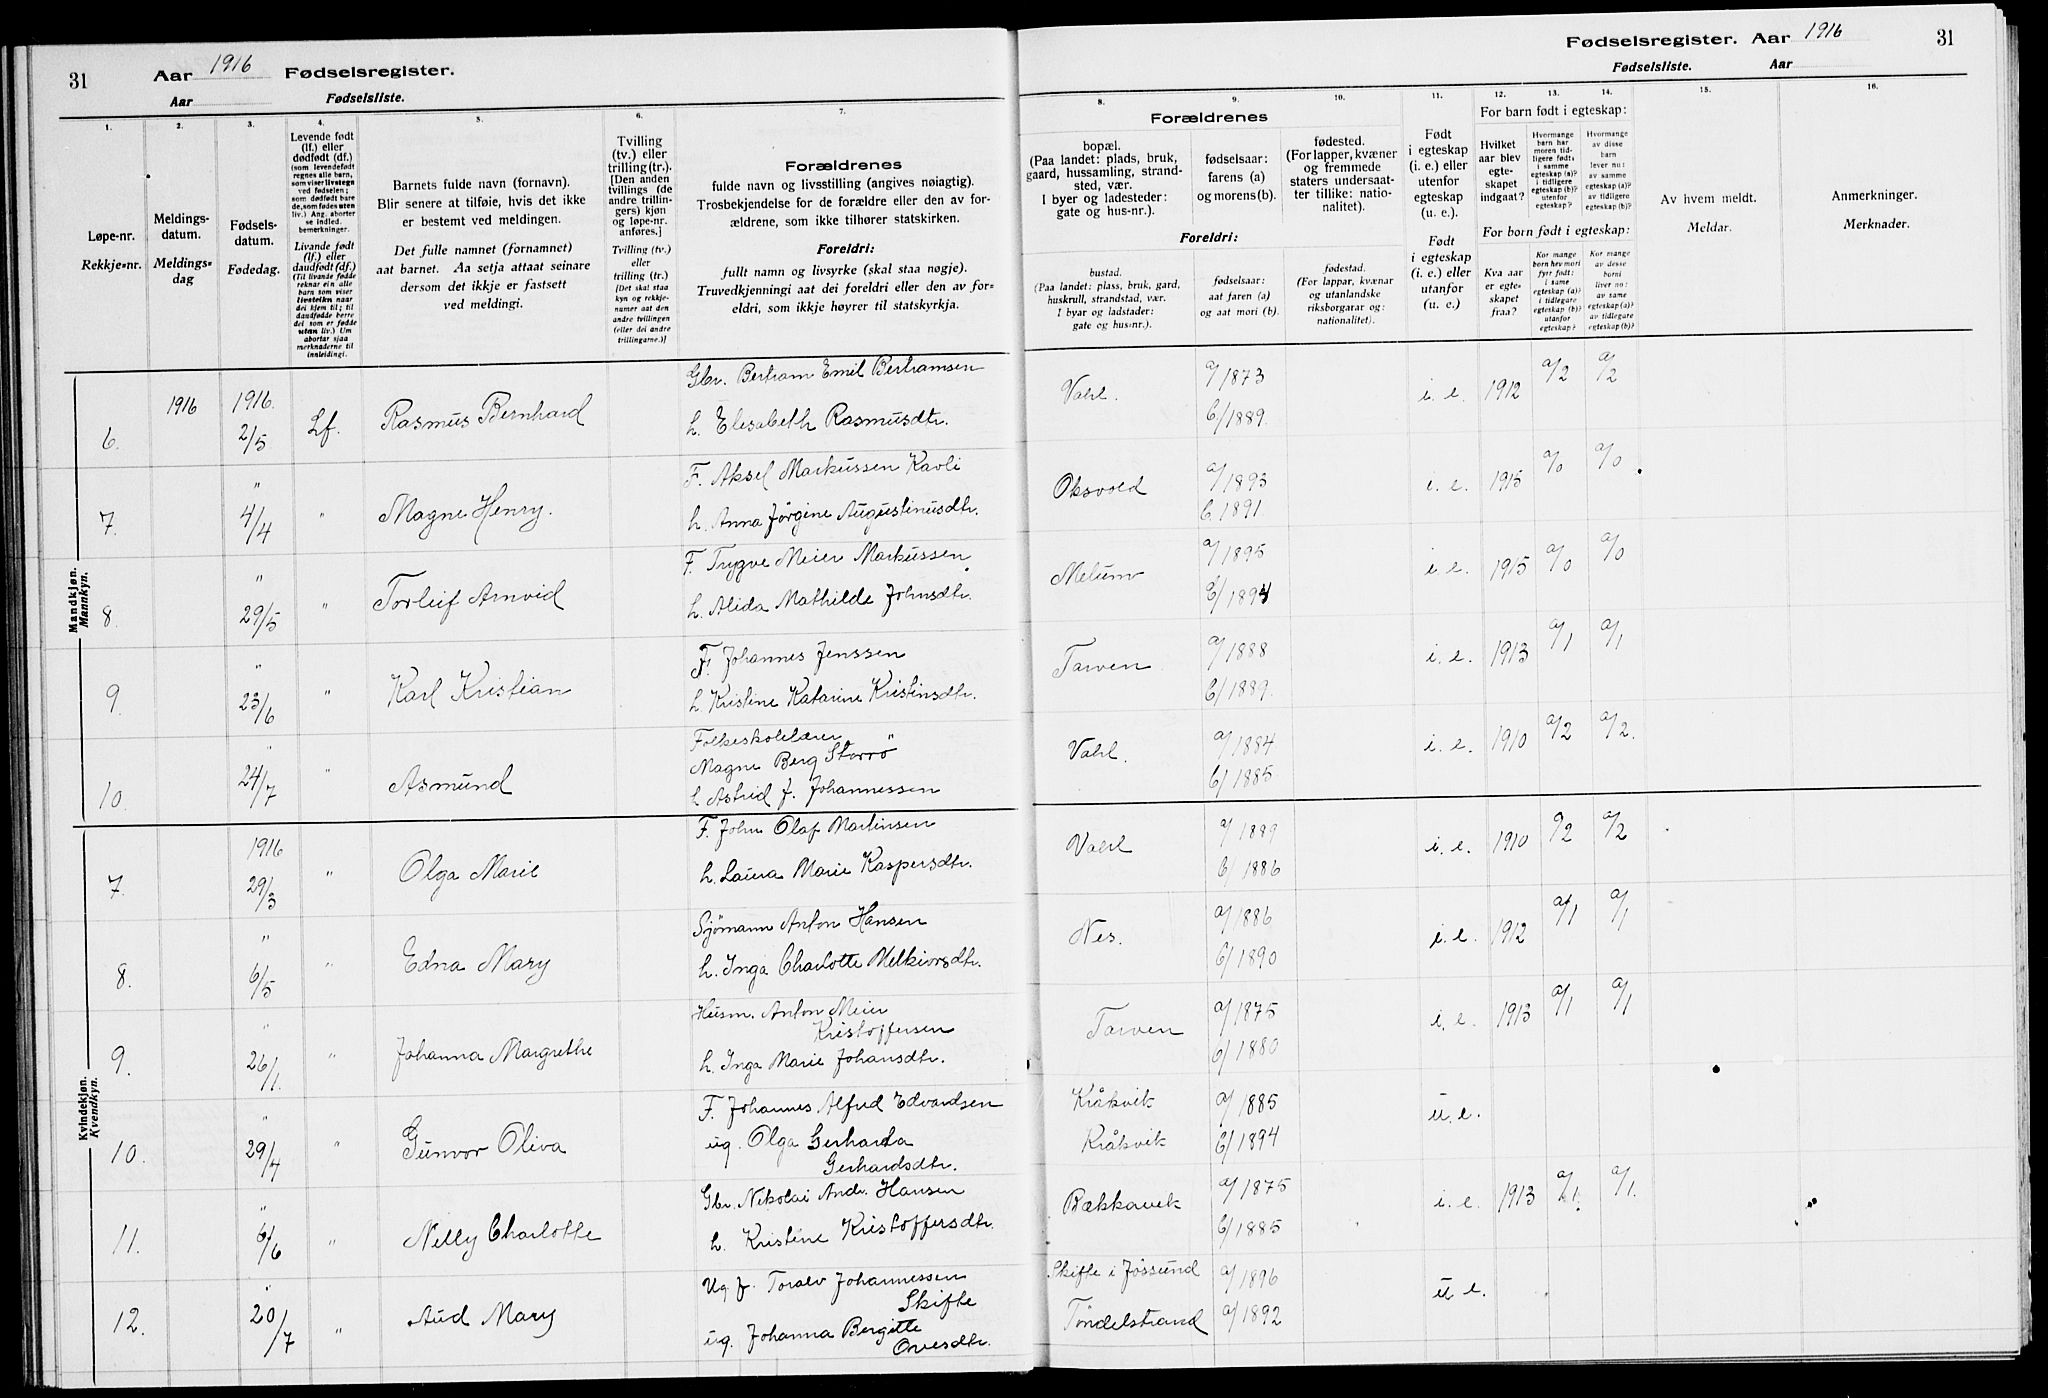 31
Aar 1916 Fødselsregister.
Aar Fødselsliste.
1.
Løpe-nr.
Rekkje=nr.
2.
Meldings-
datum.
Meldings=
dag
3.
Fødsels-
datum.
Fødedag.
4.
Levende født
(lf.) eller
dødfødt (df.)
(som levendefødt
regnes alle barn,
som viser livstegn
ved fødselen;
som dødfødt bare
de, som fødes uten
liv.) Ang. aborter
se indled.
bemerkninger.
Livande født
(lf.) eller
daudfødt (df.)
(Til livande fødde
reknar ein alle
barn som viser
livsteikn naar
dei kjem til; til
daudfødde berre
dei som er fødde
utan liv.) Um
abortar sjaa
merknaderne til
innleidingi.
5.
Barnets fulde navn (fornavn).
Blir senere at tilføie, hvis det ikke
er bestemt ved meldingen.
Det fulle namnet (fornamnet)
aat barnet. Aa setja attaat seinare
dersom det ikkje er fastsett
ved meldingi.
6.
Tvilling
(tv.) eller
trilling (tr.).
[Den anden
tvillings (de
andre trillin-
gers) kjøn
og løpe-nr.
anføres.]
Tvilling (tv.)
eller
trilling (tr.)
[Det skal staa
kyn og rekkje-
numer aat den
andre tvillingen
(eller dei andre
trillingarne.)]
7.
Forældrenes
fulde navn og livsstilling (angives nøiagtig).
Trosbekjendelse for de forældre eller den av for-
ældrene, som ikke tilhører statskirken.
Foreldri:
fullt namn og livsyrke (skal staa nøgje).
Truvedkjenningi aat dei foreldri eller den av for=
eldri, som ikkje høyrer til statskyrkja.
Mandkjøn.
Mannkyn.
6. 1916 1916. 2/5 Lf. Rasmus Bernhard
Gbr. Bertram Emil Bertramsen
h. Elesabeth Rasmusdtr.
7. " 4/4 " Magne Henry.
F. Aksel Markussen Kavli
h. Anna Jørgine Augustinusdtr.
8. " 29/5 " Torleif Arnvid
F. Trygve Meier Markussen
h. Alida Mathilde Johnsdtr.
9. " 23/6 " Karl Kristian
F. Johannes Jenssen
h. Kristine Katarine Kristinsdtr.
10. " 24/7 " Asmund
Folkeskolelærer
Magne Berg Storrø
h. Astrid J. Johannessen
Kvindekjøn.
Kvendkyn.
7. 1916 29/3 " Olga Marie
F. John Olaf Martinsen
h. Laura Marie Kaspersdtr.
8. " 6/5 " Edna Mary
Sjømann Anton Hansen
h. Inga Charlotte Melkiorsdtr.
9. " 26/1. " Johanna Margrethe
Husm. Anton Meier
Kristoffersen
h. Inga Marie Johansdtr.
10. " 29/4 " Gunvor Oliva
F. Johannes Alfred Edvardsen
ug. Olga Gerharda
Gerhardsdtr.
11. " 6/6 " Nelly Charlotte
Gbr. Nikolai Andr. Hansen
h. Kristine Kristoffersdtr.
12. " 20/7 " Aud Mary
Ug. f. Toralv Johannessen
Skifte
ug. Johanna Bergitte
Ovesdtr.
Fødselsregister. Aar 1916
31
Fødselsliste. Aar
8.
9.
10.
Forældrenes
bopæl.
(Paa landet: plads, bruk,
gaard, hussamling, strand-
sted, vær.
I byer og ladesteder:
gate og hus-nr.).
fødselsaar:
farens (a)
og morens (b).
fødested.
(For lapper, kvæner
og fremmede
staters undersaat-
ter tillike: natio-
nalitet).
Foreldri:
bustad.
(Paa landet: plass, bruk, gard,
huskrull, strandstad, vær.
I byar og ladstader:
gate og hus=nr.).
fødselsaar:
aat faren (a)
og aat mori (b).
fødestad.
(For lappar, kvænar
og utanlandske
riksborgarar og:
nationalitet).
11.
Født
i egteskap
(i. e.) eller
utenfor
egteskap
(u. e.).
Født
i egteskap
(i. e.) eller
utanfor
(u. e.)
12.
13.
14.
For barn født i egteskap:
Hvilket
aar blev
egte-
skapet
indgaat?
Hvormange
barn har
moren tid-
ligere født:
i samme
egteskap (a)?
i tidligere
egteskap (b)?
utenfor
egteskap?
Hvormange
av disse
barn
lever nu:
av samme
egteskap (a)?
av tidligere
egteskap (b)?
For born født i egteskap:
Kva aar
er egte=
skapet
fraa?
Kor mange
born hev mori
fyrr født:
i same
egteskap (a)?
i tidlegare
egteskap (b)?
utanfor
egteskap?
Kor mange
av desse
borni
liver no:
av same
egteskap (a)?
av tidlegare
egteskap (b)?
15.
Av hvem meldt.
Meldar.
16.
Anmerkninger.
Merknader.
Vahl. a/1873 b/1889. i. e. 1912 a/2 a/2
Oksvold a/1893 b.1891. i. e. 1915 a/0 a/0
Melum a/1895 b/1894 i. e. 1915 a/0 a/0
Tarven a/1888 b/1889. i. e. 1913 a/1 a/1
Vahl. a/1884 b/1885. i. e. 1910 a/2 a/2.
Vahl a/1889 b/1886 i. e. 1910 a/2 a/2
Nes. a/1886 b/1890 i. e. 1912 a/1 a/1
Tarven a/1875 b/1880 i. e. 1913 a/1 a/1
Kråkvik a/1885 u. e.
Kråkvik b/1894
Bækkavik a/1875 b/1885 i. e. 1913 a/1. a/1.
Skifte i Jøssund a/1896 u e.
Tøndelstrand a/1892